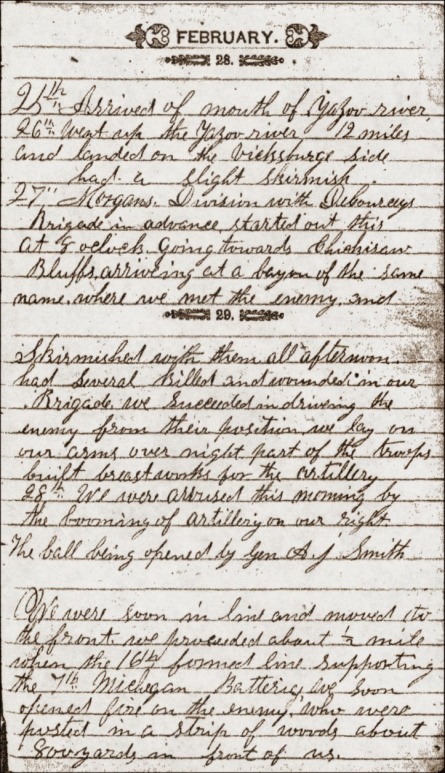 FEBRUARY.
28.
25th Arrived of mouth of Yazov river
26th Went up the Yazov river 12 miles
and landed on the Vicksburge side
had a slight skirmish
27" Morgans Division with Debourceys
Brigade in advance started out this
at 8 oclock going towards Chickisaw
Bluffs, arriveing at a bayou of the same
name, where we met the enemy, and
29.
Skirmished with them all afternoon.
had several killed and wounded in our
Brigade we succeeded in driveing the
enemy from their position, we lay on
our arms over night part of the troops
built breastworks for the artillery
28th We were aroused this morning by
the booming of artillery on our right
The ball being opened by Gen A J Smith
We were soon in line and moved to
the front we proceeded about ½ mile
when the 16th formed line supporting
the 7th Michegan Batterie, We soon
opened fire on the enemy, who were
posted in a strip of woods about
800 yards in front of us.